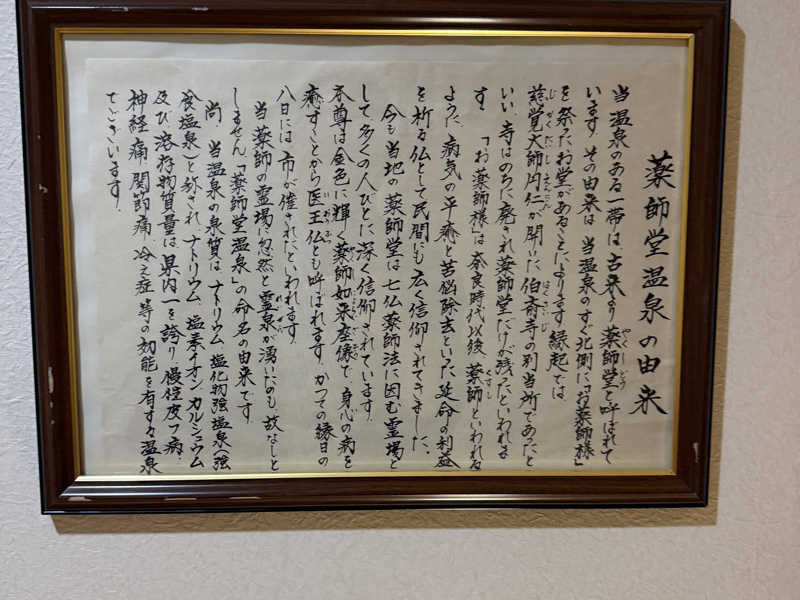 薬師堂温泉の由来
当温泉のある一帯は、古来より薬師堂と呼ばれて
います。その由来は、当温泉のすぐ北側に「お薬師様」
を祭ったお堂があることによります。縁起では
慈覚大師円仁が開いた伯斎寺の別当所であったと
いい、寺はのちに廃され薬師堂だけが残ったといわれま
す。「お薬師様」は奈良時代以後、薬師といわれる
ように、病気の平癒と苦悩除去といった延命の利益
を祈る仏として民間にも広く信仰されてきました。
今も当地の薬師堂は七仏薬師法に因む霊場と
して、多くの人びとに深く信仰されています。
本尊は金色に輝く薬師如来座像で、身心の病を
癒すことから医王仏とも呼ばれます。かつての縁日の
八日には、市が催されたといわれます。
当薬師の霊場に忽然と霊泉が湧いたのも、故なしと
しません。「薬師堂温泉」の命名の由来です。
尚、当温泉の泉質は、ナトリウム 塩化物強塩泉(強
食塩泉)と称され、ナトリウム、塩素イオン、カルシュウム
及び溶存物質量は、県内一を誇り、慢性皮フ病、
神経痛、関節痛、冷え症、等の効能を有する温泉
でございます。